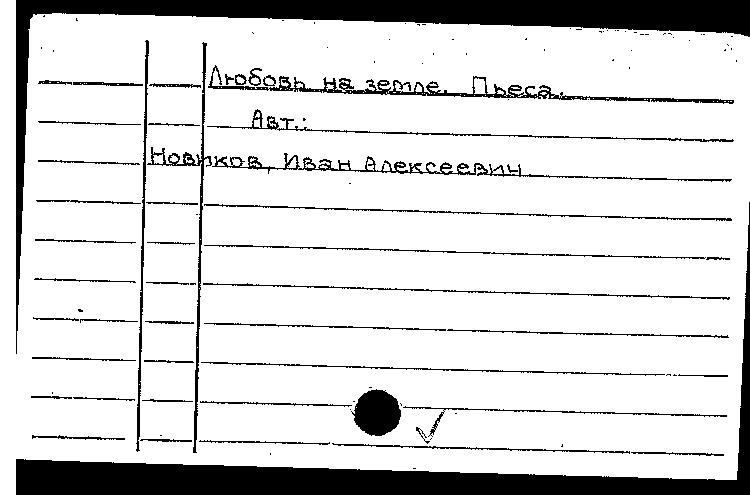 Любовь на земле. Пьеса.
Авт.:
Новиков, Иван Алексеевич